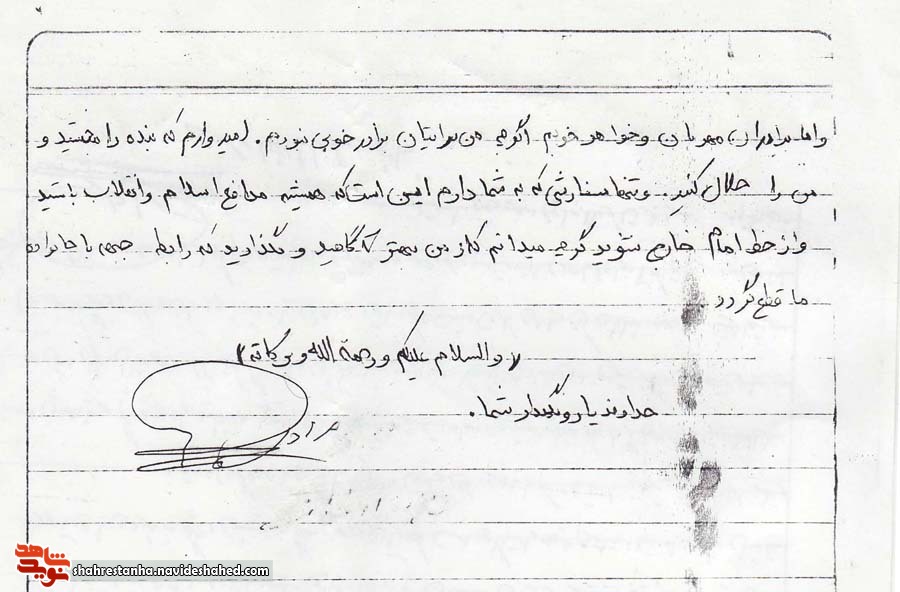 واما برادران مهربان وخواهر خوبم اگرچه من برایتان برادر خوبی نبودم. امیدوارم که بنده را ببخشید و
من را حلال کنید. وتنها سفارشی که به شما دارم این است که همیشه مدافع اسلام وانقلاب باشید
واز خط امام خارج نشوید گرچه میدانم که از من بهتر آگاهید و نگذارید که رابطه جبهه با خانواده
ما قطع گردد.
والسلام علیکم ورحمة الله وبرکاته
خداوند یار ونگهدار شما.
شاهد
نوید
shahrestanha.navideshahed.com